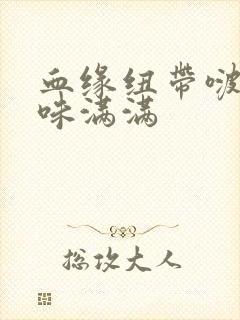 血缘纽带啵
味满满
总攻大人